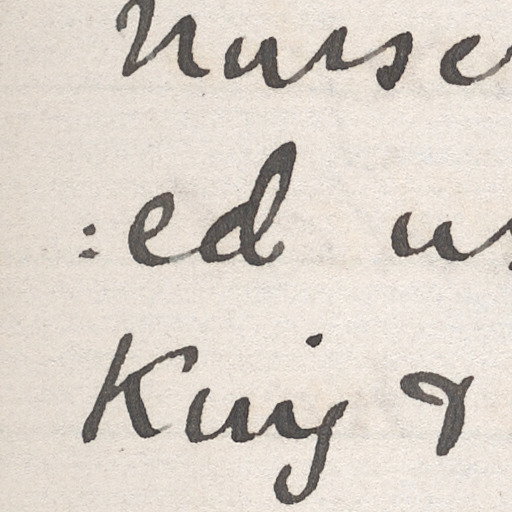 nurse
:ed
King &